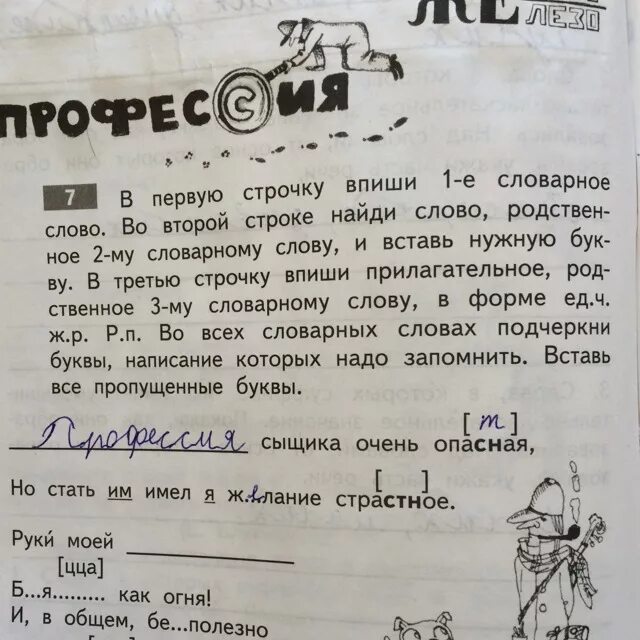 ЖЕ
ЛЕЗО
ПРОФЕССИЯ
7 В первую строчку впиши 1-е словарное
слово. Во второй строке найди слово, родствен-
ное 2-му словарному слову, и вставь нужную бук-
ву. В третью строчку впиши прилагательное, род-
ственное 3-му словарному слову, в форме ед.ч.
ж.р. Р.п. Во всех словарных словах подчеркни
буквы, написание которых надо запомнить. Вставь
все пропущенные буквы.
[ т ]
Профессия сыщика очень опасная,
[ ]
Но стать им имел я ж.е.лание страстное.
Руки́ моей
[цца]
Б...я......... как огня!
И, в общем, бе...полезно